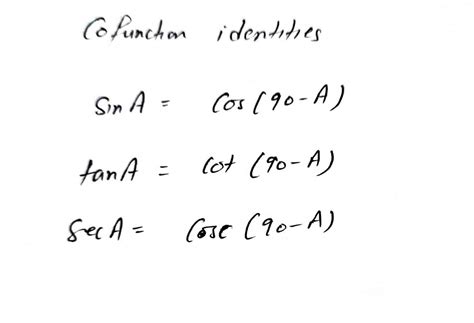 Cofunction identities
Sin A = Cos (90-A)
tan A = Cot (90-A)
Sec A = Cosc (90-A)